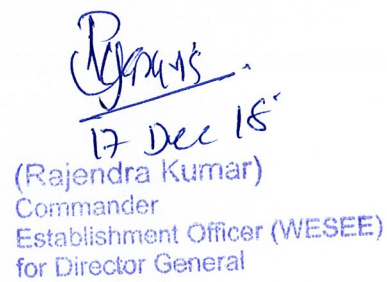 17 Dec 18
(Rajendra Kumar)
Commander
Establishment Officer (WESEE)
for Director General